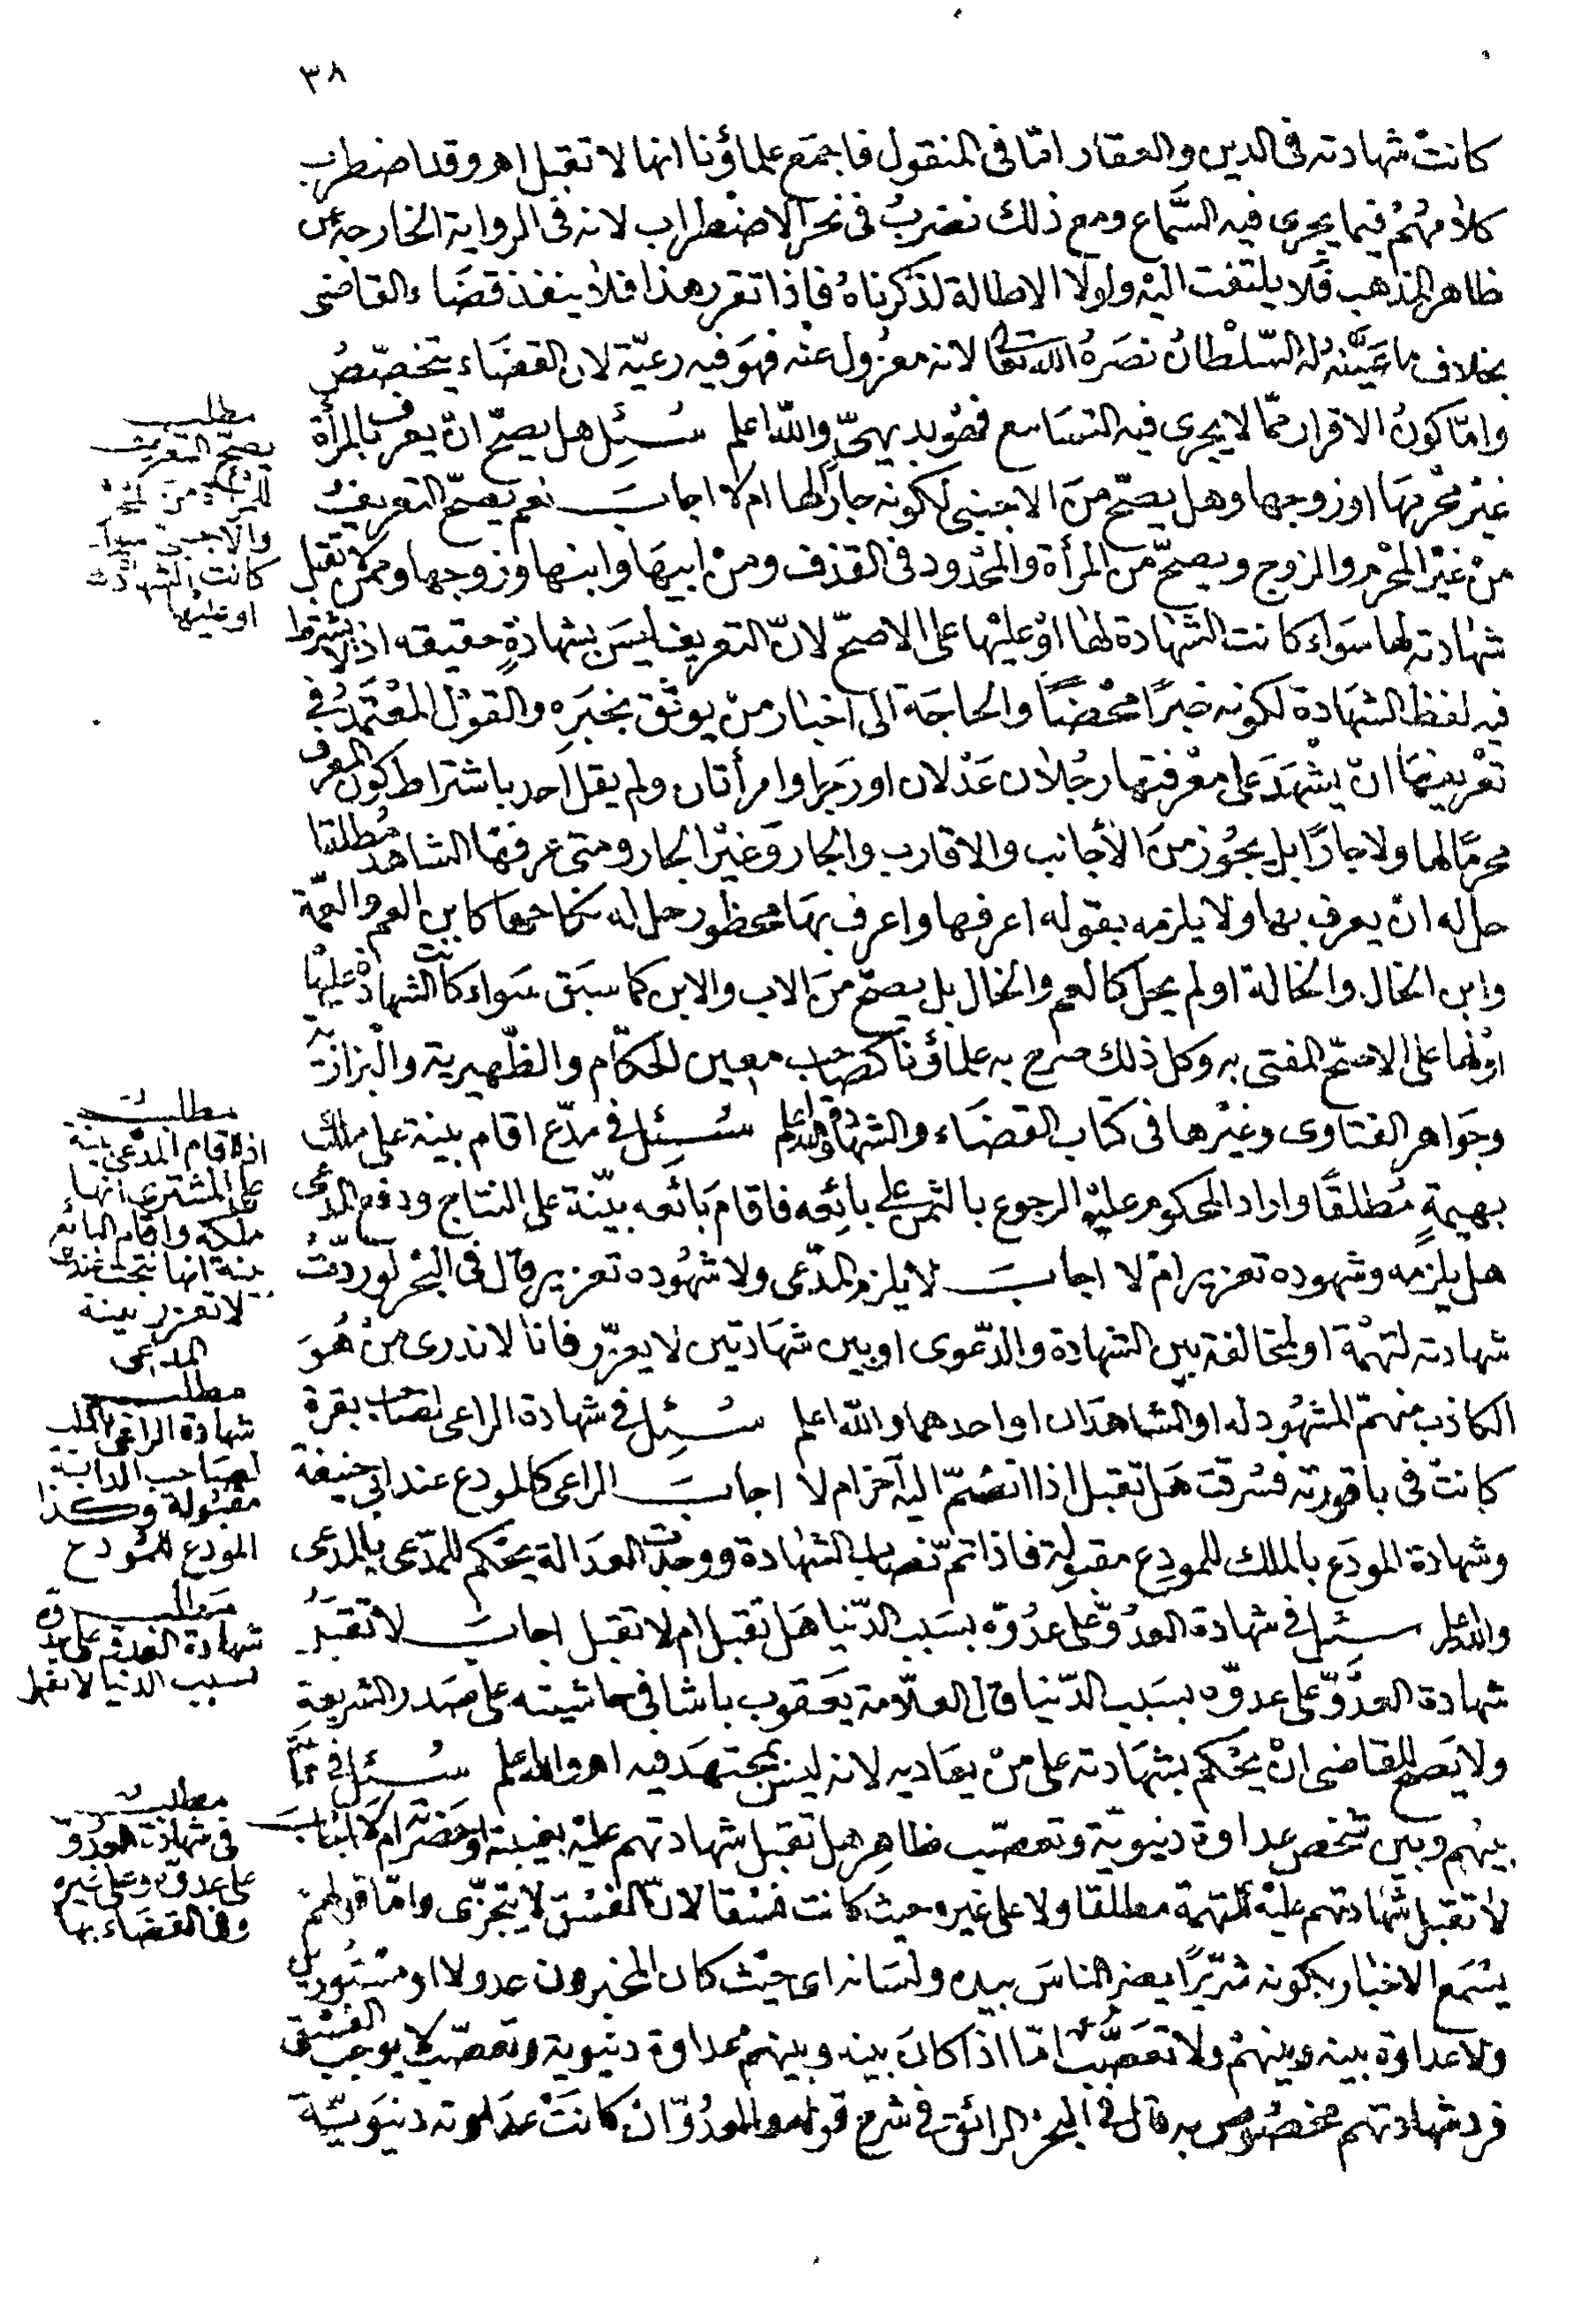 ٣٨
كانت شهادته فى الدين والعقار امّا فى المنقول فاجمع علماؤنا انها لا تقبل اهـ وقد اضطرب
كلامهم فيما يجرى فيه السّماع ومع ذلك نضرب فى نحر الاضطراب لانه فى الرواية الخارجة عن
ظاهر المذهب فلا يلتفت اليه ولولا الاطالة لذكرناه فاذا تقرر هذا فلا ينفذ قضاء القاضى
بخلاف ما عيّنه له السّلطان نصره الله تعالى لانه معزول عنه فهو فيه رعيّة لان القضاء يتخصّص
وامّا كون الاقرار ممّا لا يجرى فيه التسامع فهو بديهىّ والله اعلم سُئِل هل يصحّ ان يعرف بالمرأة
غير محرمها او زوجها وهل يصحّ من الاجنبى لكونه جارًا لها ام لا اجاب نعم يصحّ التعريف
من غير المحرم والزوج ويصحّ من المرأة والمحدود فى القذف ومن ابيها وابنها وزوجها وممن لا تقبل
شهادته لها سواء كانت الشهادة لها او عليها على الاصحّ لانّ التعريف ليس بشهادةٍ حقيقه اذ لا يشترط
فيه لفظ الشهادة لكونه خبرًا محضًا والحاجة الى اخبار من يوثق بخبره والقول المعتمد فى
تعريفها ان يشهد على معرفتها رجلان عدلان او رجل وامرأتان ولم يقل احد باشتراط كون المعرف
محرمًا لها ولا جارًا بل يجوز من الأجانب والاقارب والجار وغير الجار ومتى عرفها الشاهد مطلقا
حل له ان يعرف بها ولا يلزمه بقوله اعرفها واعرف بها محظور حل له نكاحها كابن العم والعمّة
وابن الخال والخالة او لم يحل كالعم والخال بل يصحّ من الاب والابن كما سبق سواء كانت الشهادة عليها
او لها على الاصحّ المفتى به وكل ذلك صرح به علماؤنا كصاحب معين الحكّام والظّهيرية والبزازية
وجواهر الفتاوى وغيرها فى كتاب القضاء والشهادة والله اعلم سُئِل فى مدّع اقام بينة على ملك
بهيمةٍ مُطلقًا واراد المحكوم عليه الرجوع بالثمن على بائعه فاقام بائعه بيّنة على النتاج ودفع المدّعى
هل يلزمه وشهوده تعزير ام لا اجاب لا يلزم المدّعى ولا شهوده تعزير قال فى البحر لو ردّت
شهادته لتهمة او لمخالفة بين الشهادة والدّعوى او بين شهادتين لا يعزّر فانا لا ندرى من هو
الكاذب منهم المشهود له او الشاهدان او احدهما والله اعلم سُئِل فى شهادة الراعى لصاحب بقرة
كانت فى باقورته فسرقت هل تقبل اذا انضمّ اليه آخر ام لا اجاب الراعى كالمودع عند ابى حنيفة
وشهادة المودَع بالملك للمودِع مقبولة فاذا تمّ نصاب الشهادة ووجدت العدالة يحكم للمدّعى بالمدعى
والله اعلم سئِل فى شهادة العدُوّ على عدُوّه بسبب الدّنيا هل تقبل ام لا تقبل اجاب لا تقبَل
شهادة العدُوّ على عدوّه بسبب الدّنيا قال العلّامة يعقوب باشا فى حاشيته على صدر الشريعة
ولا يصح للقاضى ان يحكم بشهادته على من يعاديه لانه ليس بمجتهد فيه اهـ والله اعلم سُئِل فى
بينهم وبين شخص عداوة دنيويّة وتعصّب ظاهر هل تقبل شهادتهم عليه بغيبته او حضرته ام لا اجاب
لا تقبل شهادتهم عليه للتهمة مطلقا ولا على غيره حيث كانت فسقا لانّ الفسق لا يتجزّى وامّا قولهم
يسمع الاخبار بكونه شرّيرًا يضر الناس بيده ولسانه اى حيث كان المخبرون عدولا او مستورين
ولا عداوة بينه وبينهم ولا تعصّب امّا اذا كان بينه وبينهم عداوة دنيوية وتعصّب لا يوجب الفسق
فرد شهادتهم مخصوص به قال فى البحر الرائق فى شرح قوله والعدُوّ ان كانت عداوته دنيويّة
مطلب
يصحّ التعريف
للمرأة من المحرم
والاجنبى سواء
كانت الشهادة لها
او عليها
مطلب
اذا اقام المدّعى بينة
على المشترى انها
ملكه واقام البائع
بينة انها نتجت عنده
لا تعزر بينة
المدعى
مطلب
شهادة الراعى بالملك
لصاحب الدابة
مقبولة وكذا
المودع للمودع
مطلب
شهادة العدو على عدوه
بسبب الدنيا لا تقبل
مطلب
فى شهادة العدوّ
على عدوّه وعلى غيره
وفى القضاء بها